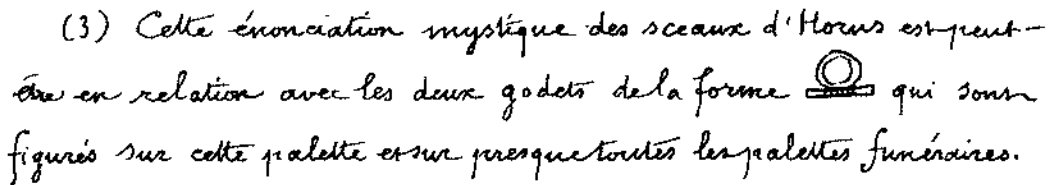 (3) Cette énonciation mystique des sceaux d'Horus est peut-
être en relation avec les deux godets de la forme qui sont
figurés sur cette palette et sur presque toutes les palettes funéraires.